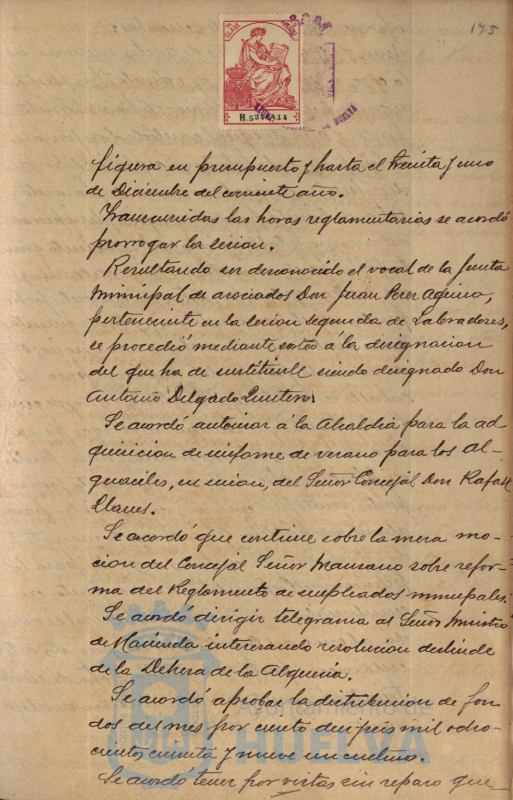 175
11ª CLASE
B.5244414
HUELVA
figura en presupuesto y hasta el treinta y uno
de Diciembre del corriente año.
Transcurridas las horas reglamentarias se acordó
prorrogar la sesion.
Resultando ser desconocido el vocal de la Junta
Municipal de asociados Don Juan Perez Aquino,
perteneciente en la sesion segunda de Labradores,
se procedió mediante sorteo á la designacion
del que ha de sustituirle siendo designado Don
Antonio Delgado Quintero.
Se acordó autorizar á la Alcaldia para la ad-
quisicion de uniforme de verano para los Al-
guaciles, en union, del Señor Concejal Don Rafael
Llanes.
Se acordó que continue sobre la mesa mo-
cion del Concejal Señor Manzano sobre refor-
ma del Reglamento de empleados municipales.
Se acordó dirigir telegrama al Señor Ministro
de Hacienda interesando resolucion deslinde
de la Dehesa de la Alqueria.
Se acordó aprobar la distribucion de fon-
dos del mes por ciento diez y seis mil ocho-
cientos cincuenta y nueve un centimo.
Se acordó tener por vistas sin reparo que-
HUELVA